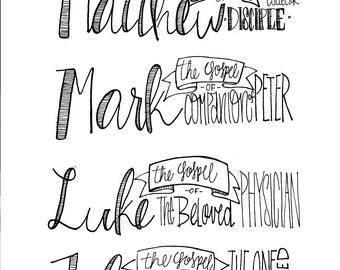 Matthew
COLLECTOR
DISCIPLE
Mark
the Gospel
-OF-
COMPANION of PETER
Luke
the Gospel
-OF-
The Beloved PHYSICIAN
the Gospel
THE ONE